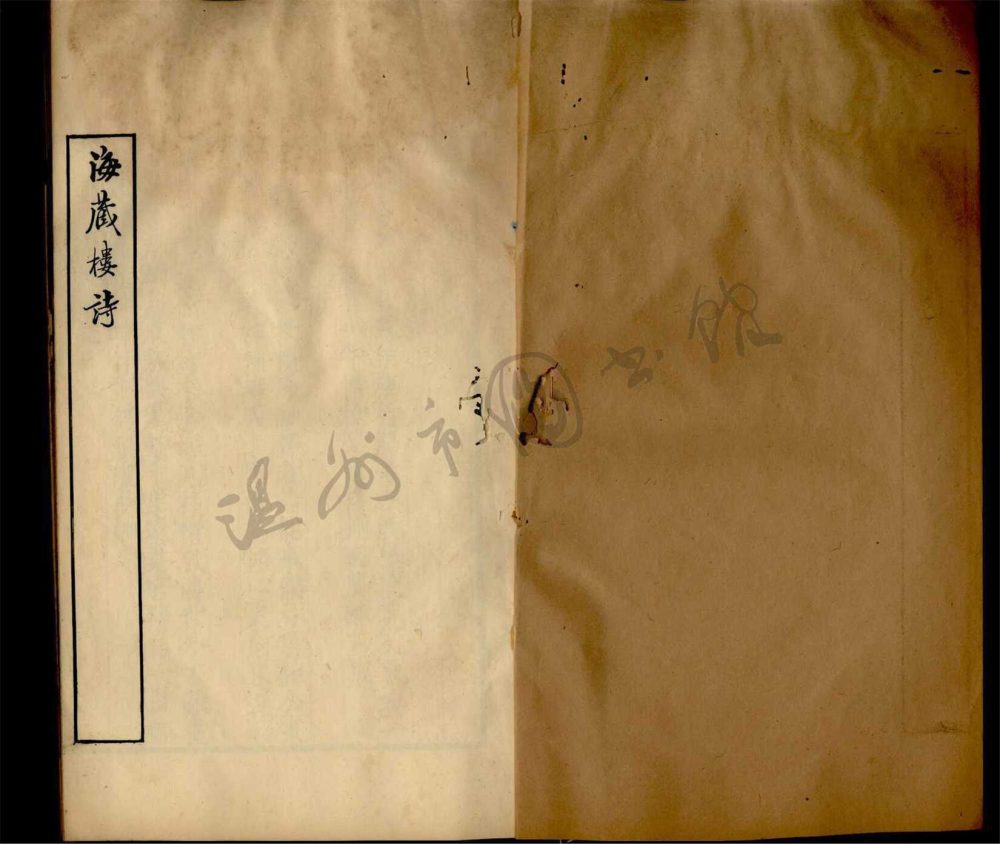 海藏樓詩
温州市圖书馆